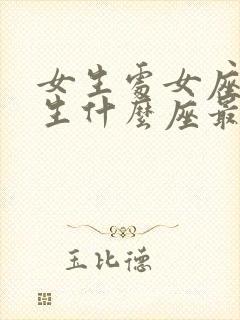 女生處女座
生什麼座最
玉比德